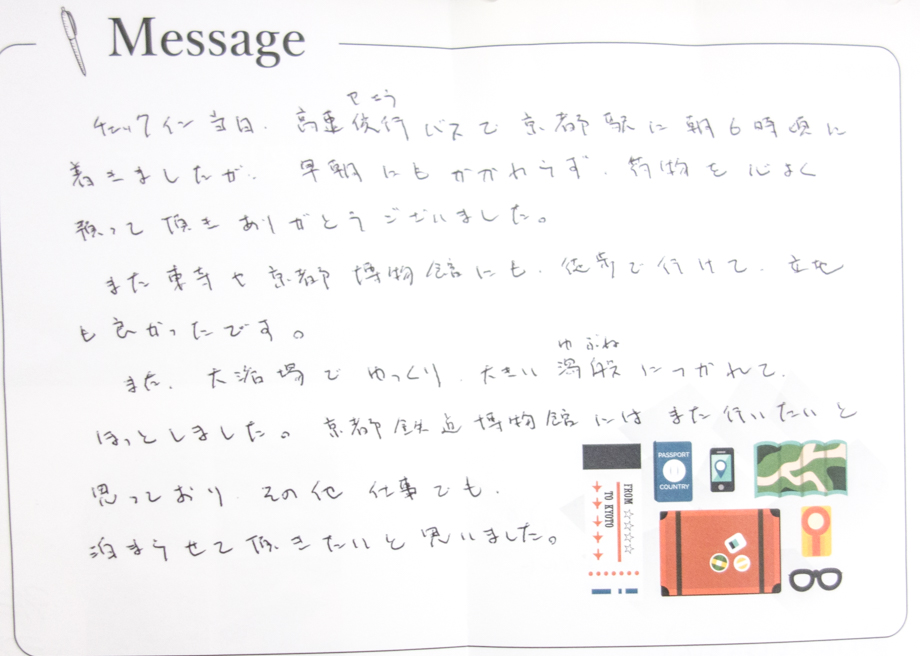 Message
チェックイン当日、高速夜行バスで京都駅に朝6時頃に
やこう
着きましたが、早朝にもかかわらず、荷物を心よく
預って頂きありがとうございました。
また東寺や京都博物館にも、徒歩で行けて、立地
も良かったです。
ゆぶね
また、大浴場でゆっくり、大きい湯船につかれて、
ほっとしました。京都鉄道博物館にはまた行いたいと
思っており その他 仕事でも、
泊まらせて頂きたいと思いました。
PASSPORT
COUNTRY
FROM ☆☆☆☆
TO KYOTO